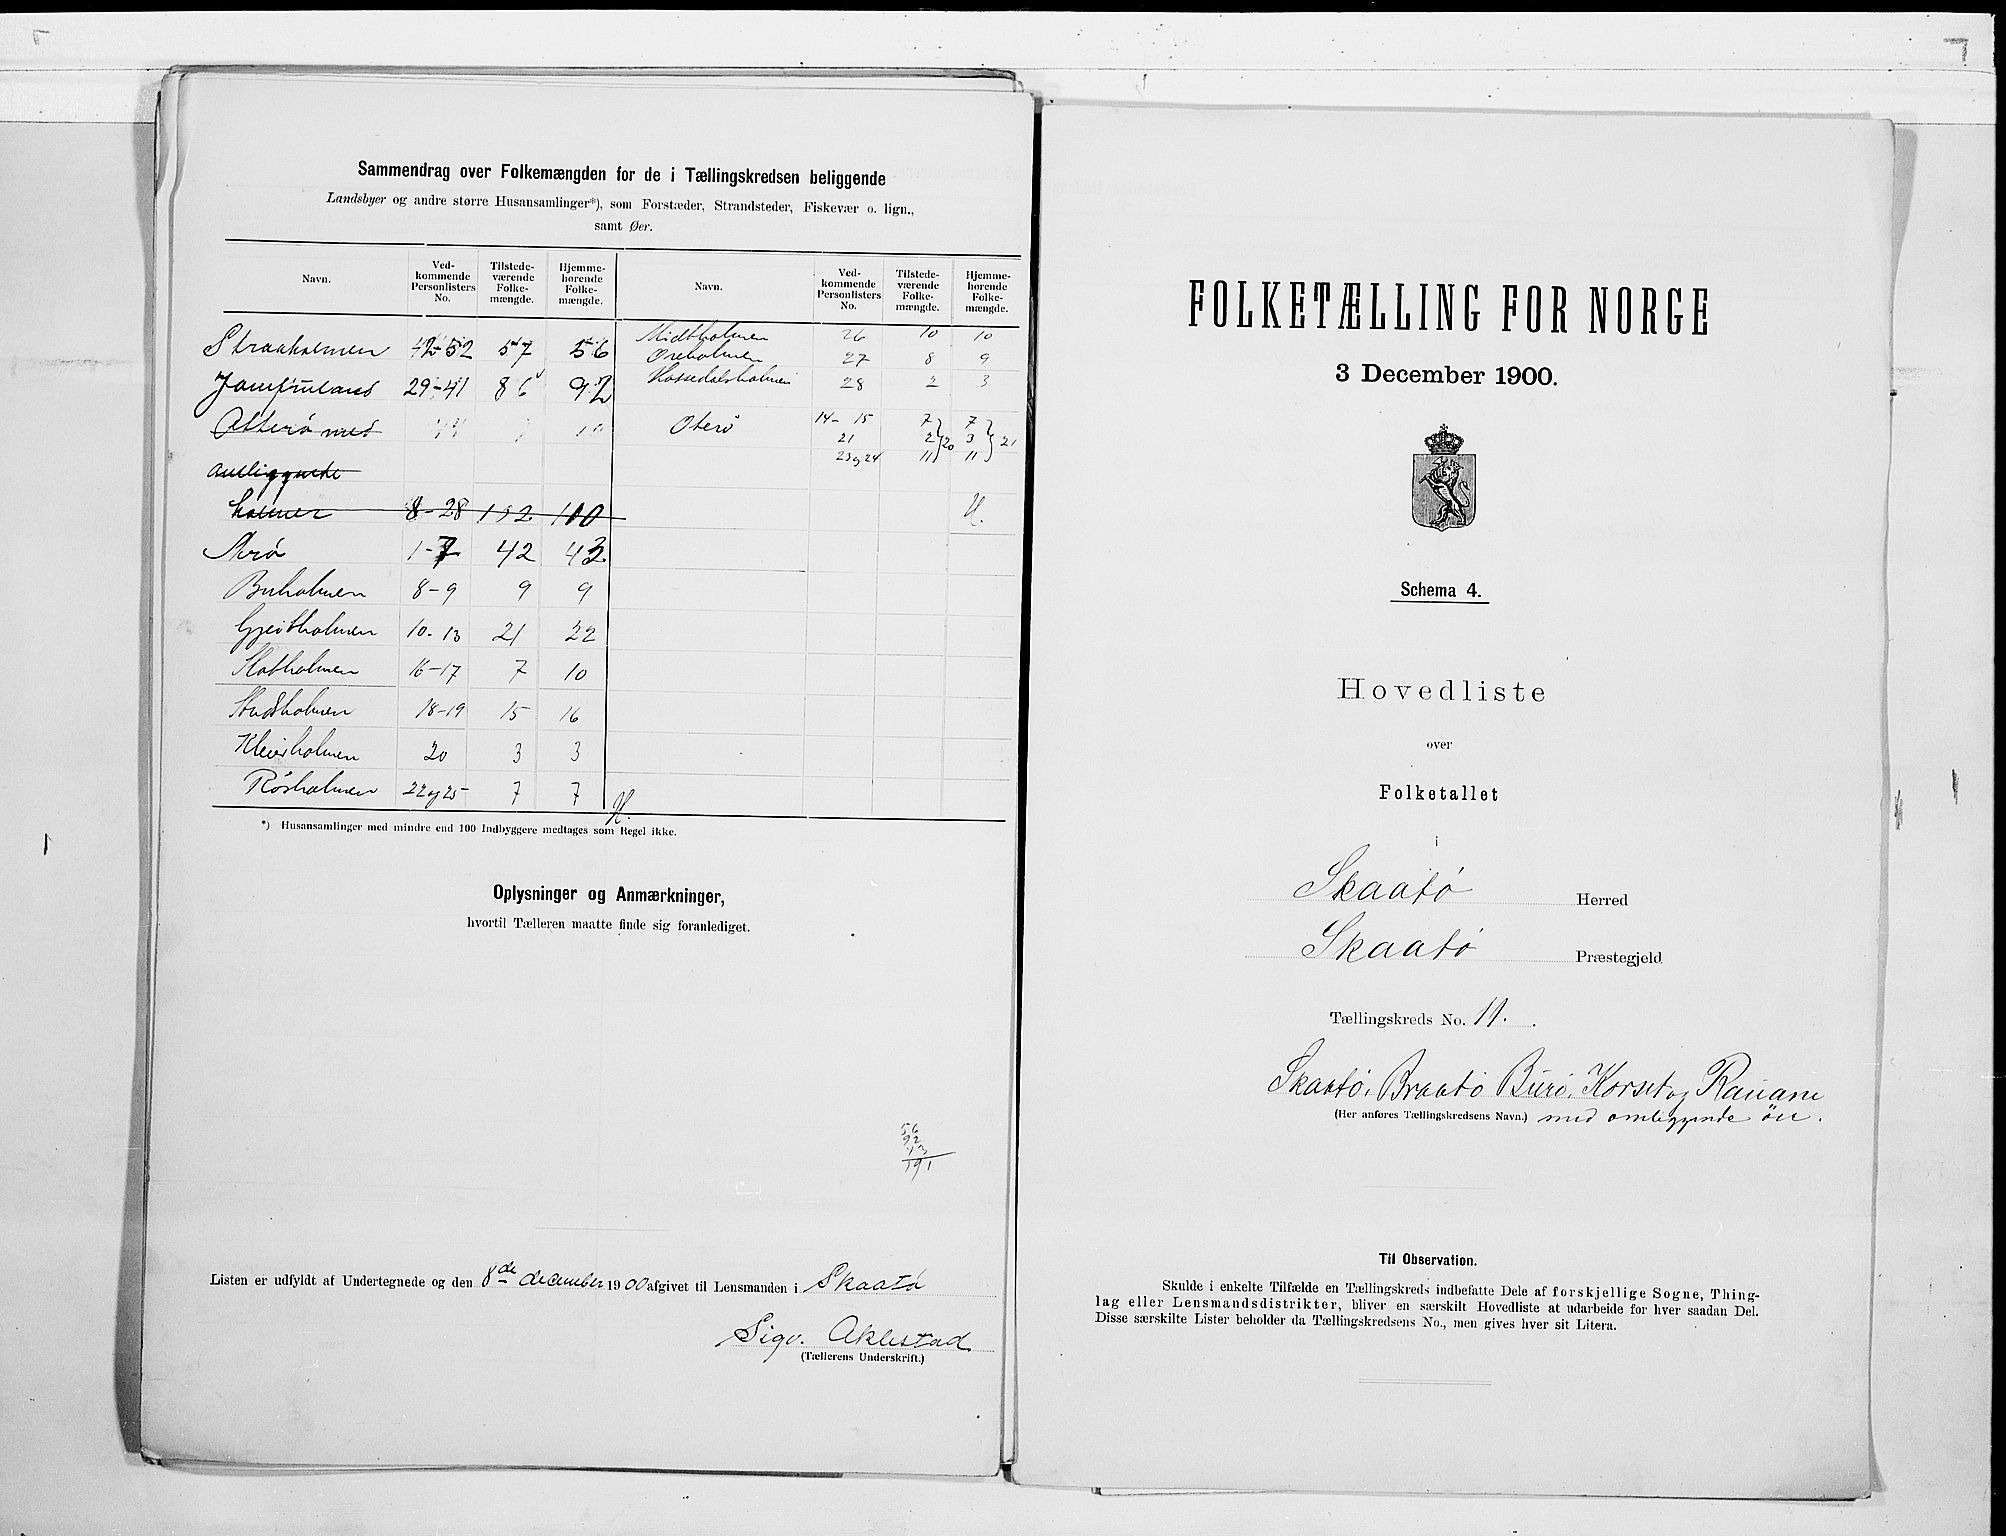 Sammendrag over Folkemængden for de i Tællingskredsen beliggende
Landsbyer og andre større Husansamlinger*), som Forstæder, Strandsteder, Fiskevær o. lign.,
samt Øer.
Navn. Ved-kommende Personlisters No. Tilstede-værende Folke-mængde. Hjemme-hørende Folke-mængde. Navn. Ved-kommende Personlisters No. Tilstede-værende Folke-mængde. Hjemme-hørende Folke-mængde.
Straaholmen 42-52 57 56 Midtholmen 26 10 10
Øreholmen 27 8 9
Jomfruland 29-41 86 92 28 2 3
Otterø med Oterø 14-15 7 7
21 2 20 3 21
23 og 24 11 11
omliggende
holmer 8-28 100 H.
Arø 1-7 42 43
Buholmen 8-9 9 9
Gjeitholmen 10-13 21 22
16-17 7 10
18-19 15 16
20 3 3
Rösholmen 22 og 25 7 7 H.
*) Husansamlinger med mindre end 100 Indbyggere medtages som Regel ikke.
Oplysninger og Anmærkninger,
hvortil Tælleren maatte finde sig foranlediget.
56
92
43
191
Listen er udfyldt af Undertegnede og den 8de december 1900 afgivet til Lensmanden i Skaatø
Sigv. Aklestad
(Tællerens Underskrift.)
FOLKETÆLLING FOR NORGE
3 December 1900.
Schema 4.
Hovedliste
over
Folketallet
i
Skaatø Herred
Skaatø Præstegjeld
Tællingskreds No. 11.
Skaatø, Braatø Burø, Korset og Rauane
(Her anføres Tællingskredsens Navn.) med omliggende öer.
Til Observation.
Skulde i enkelte Tilfælde en Tællingskreds indbefatte Dele af forskjellige Sogne, Thing-
lag eller Lensmandsdistrikter, bliver en særskilt Hovedliste at udarbeide for hver saadan Del.
Disse særskilte Lister beholder da Tællingskredsens No., men gives hver sit Litera.